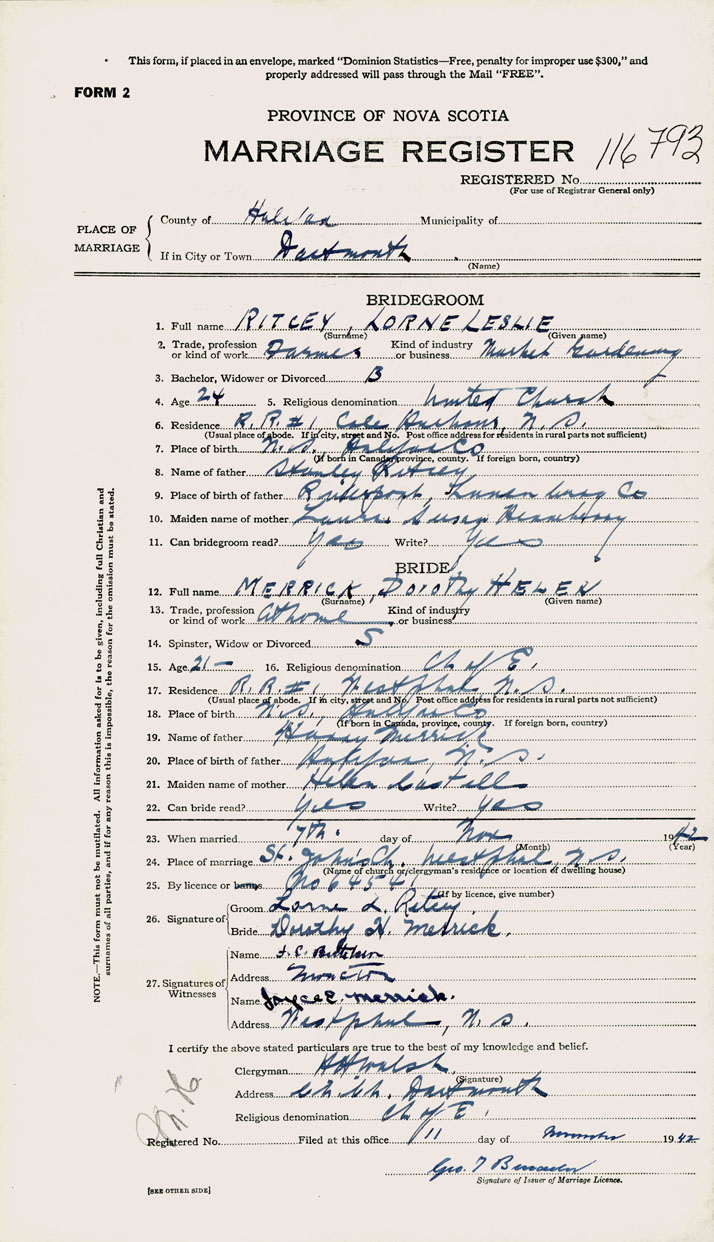 This form, if placed in an envelope, marked “Dominion Statistics—Free, penalty for improper use $300,” and
properly addressed will pass through the Mail “FREE”.
FORM 2
PROVINCE OF NOVA SCOTIA
MARRIAGE REGISTER 116793
REGISTERED No.
(For use of Registrar General only)
PLACE OF MARRIAGE
County of Halifax Municipality of
If in City or Town Dartmouth
(Name)
BRIDEGROOM
1. Full name RITCEY, LORNE LESLIE
(Surname) (Given name)
2. Trade, profession or kind of work Farmer Kind of industry or business Market Gardening
3. Bachelor, Widower or Divorced B
4. Age 24 5. Religious denomination United Church
6. Residence R.R.#1, Cole Harbour, N.S.
(Usual place of abode. If in city, street and No. Post office address for residents in rural parts not sufficient)
7. Place of birth N.S. Halifax Co
(If born in Canada, province, county. If foreign born, country)
8. Name of father Stanley Ritcey
9. Place of birth of father Riverport, Lunenburg Co
10. Maiden name of mother Laura Susan
11. Can bridegroom read? Yes Write? Yes
BRIDE
12. Full name MERRICK, DOROTHY HELEN
(Surname) (Given name)
13. Trade, profession or kind of work at home Kind of industry or business
14. Spinster, Widow or Divorced S
15. Age 21— 16. Religious denomination Ch of E.
17. Residence R.R.#1, Westphal N.S.
(Usual place of abode. If in city, street and No. Post office address for residents in rural parts not sufficient)
18. Place of birth N.S. Halifax Co
(If born in Canada, province, county. If foreign born, country)
19. Name of father Harry Merrick
20. Place of birth of father Halifax, N.S.
21. Maiden name of mother Helen Castell
22. Can bride read? Yes Write? Yes
23. When married 7th. day of Nov 1942
(Month) (Year)
24. Place of marriage St. John's Ch. Westphal, N.S.
(Name of church or clergyman's residence or location of dwelling house)
25. By licence or banns No 64541
(If by licence, give number)
26. Signature of
Groom Lorne L. Ritcey
Bride Dorothy H. Merrick.
27. Signatures of Witnesses
Name
Address Moncton
Name Joyce E. Merrick.
Address Westphal, N.S.
I certify the above stated particulars are true to the best of my knowledge and belief.
Clergyman H H Walsh
(Signature)
Address Ch. Ch. Dartmouth
Religious denomination Ch of E.
Registered No. Filed at this office 11 day of November 1942
Geo.
Signature of Issuer of Marriage Licence.
[SEE OTHER SIDE]
NOTE.—This form must not be mutilated. All information asked for is to be given, including full Christian and
surnames of all parties, and if for any reason this is impossible, the reason for the omission must be stated.